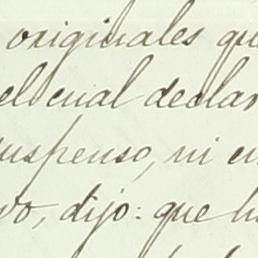 originales qu
el cual declar
suspenso, ni en
vo, dijo: que h